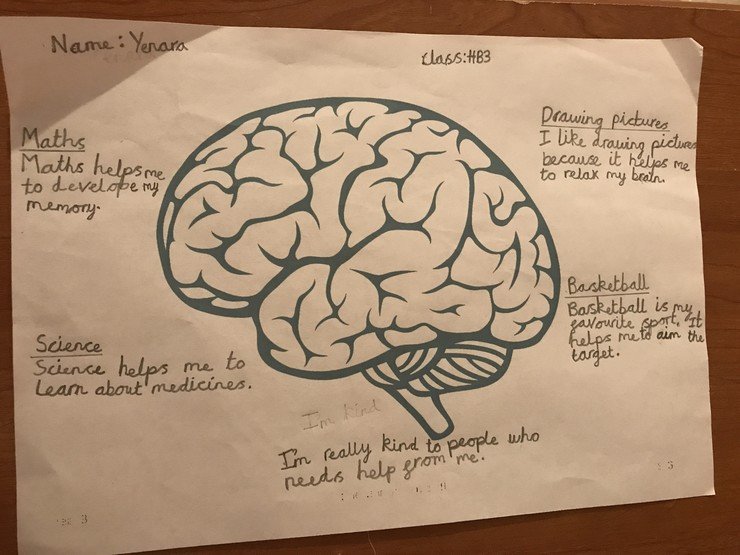 Name: Yenara
Class: HB3
Maths
Maths helps me
to develope my
memory.
Drawing pictures
I like drawing pictures
because it helps me
to relax my brain.
Basketball
Basketball is my
favourite sport. It
helps me to aim the
target.
Science
Science helps me to
Learn about medicines.
I'm kind
I'm really kind to people who
needs help from me.